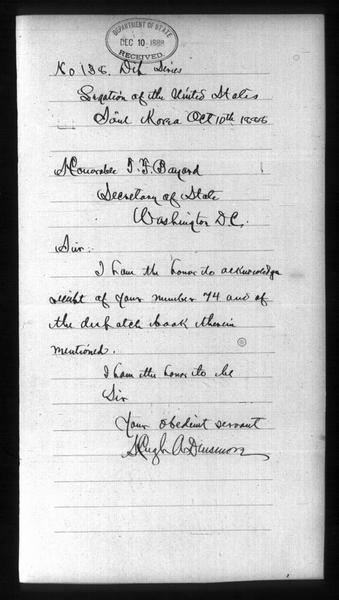 DEPARTMENT OF STATE
DEC 10 1888
RECEIVED
No 138. Dip Series
Legation of the United States
Söul Korea Oct 10th 1888
Honorable T. F. Bayard
Secretary of State
Washington D.C.
Sir:
I have the honor to acknowledge
receipt of your number 74 and of
the despatch book therein
mentioned.
I have the honor to be
Sir
Your obedient servant
Hugh A Dinsmore